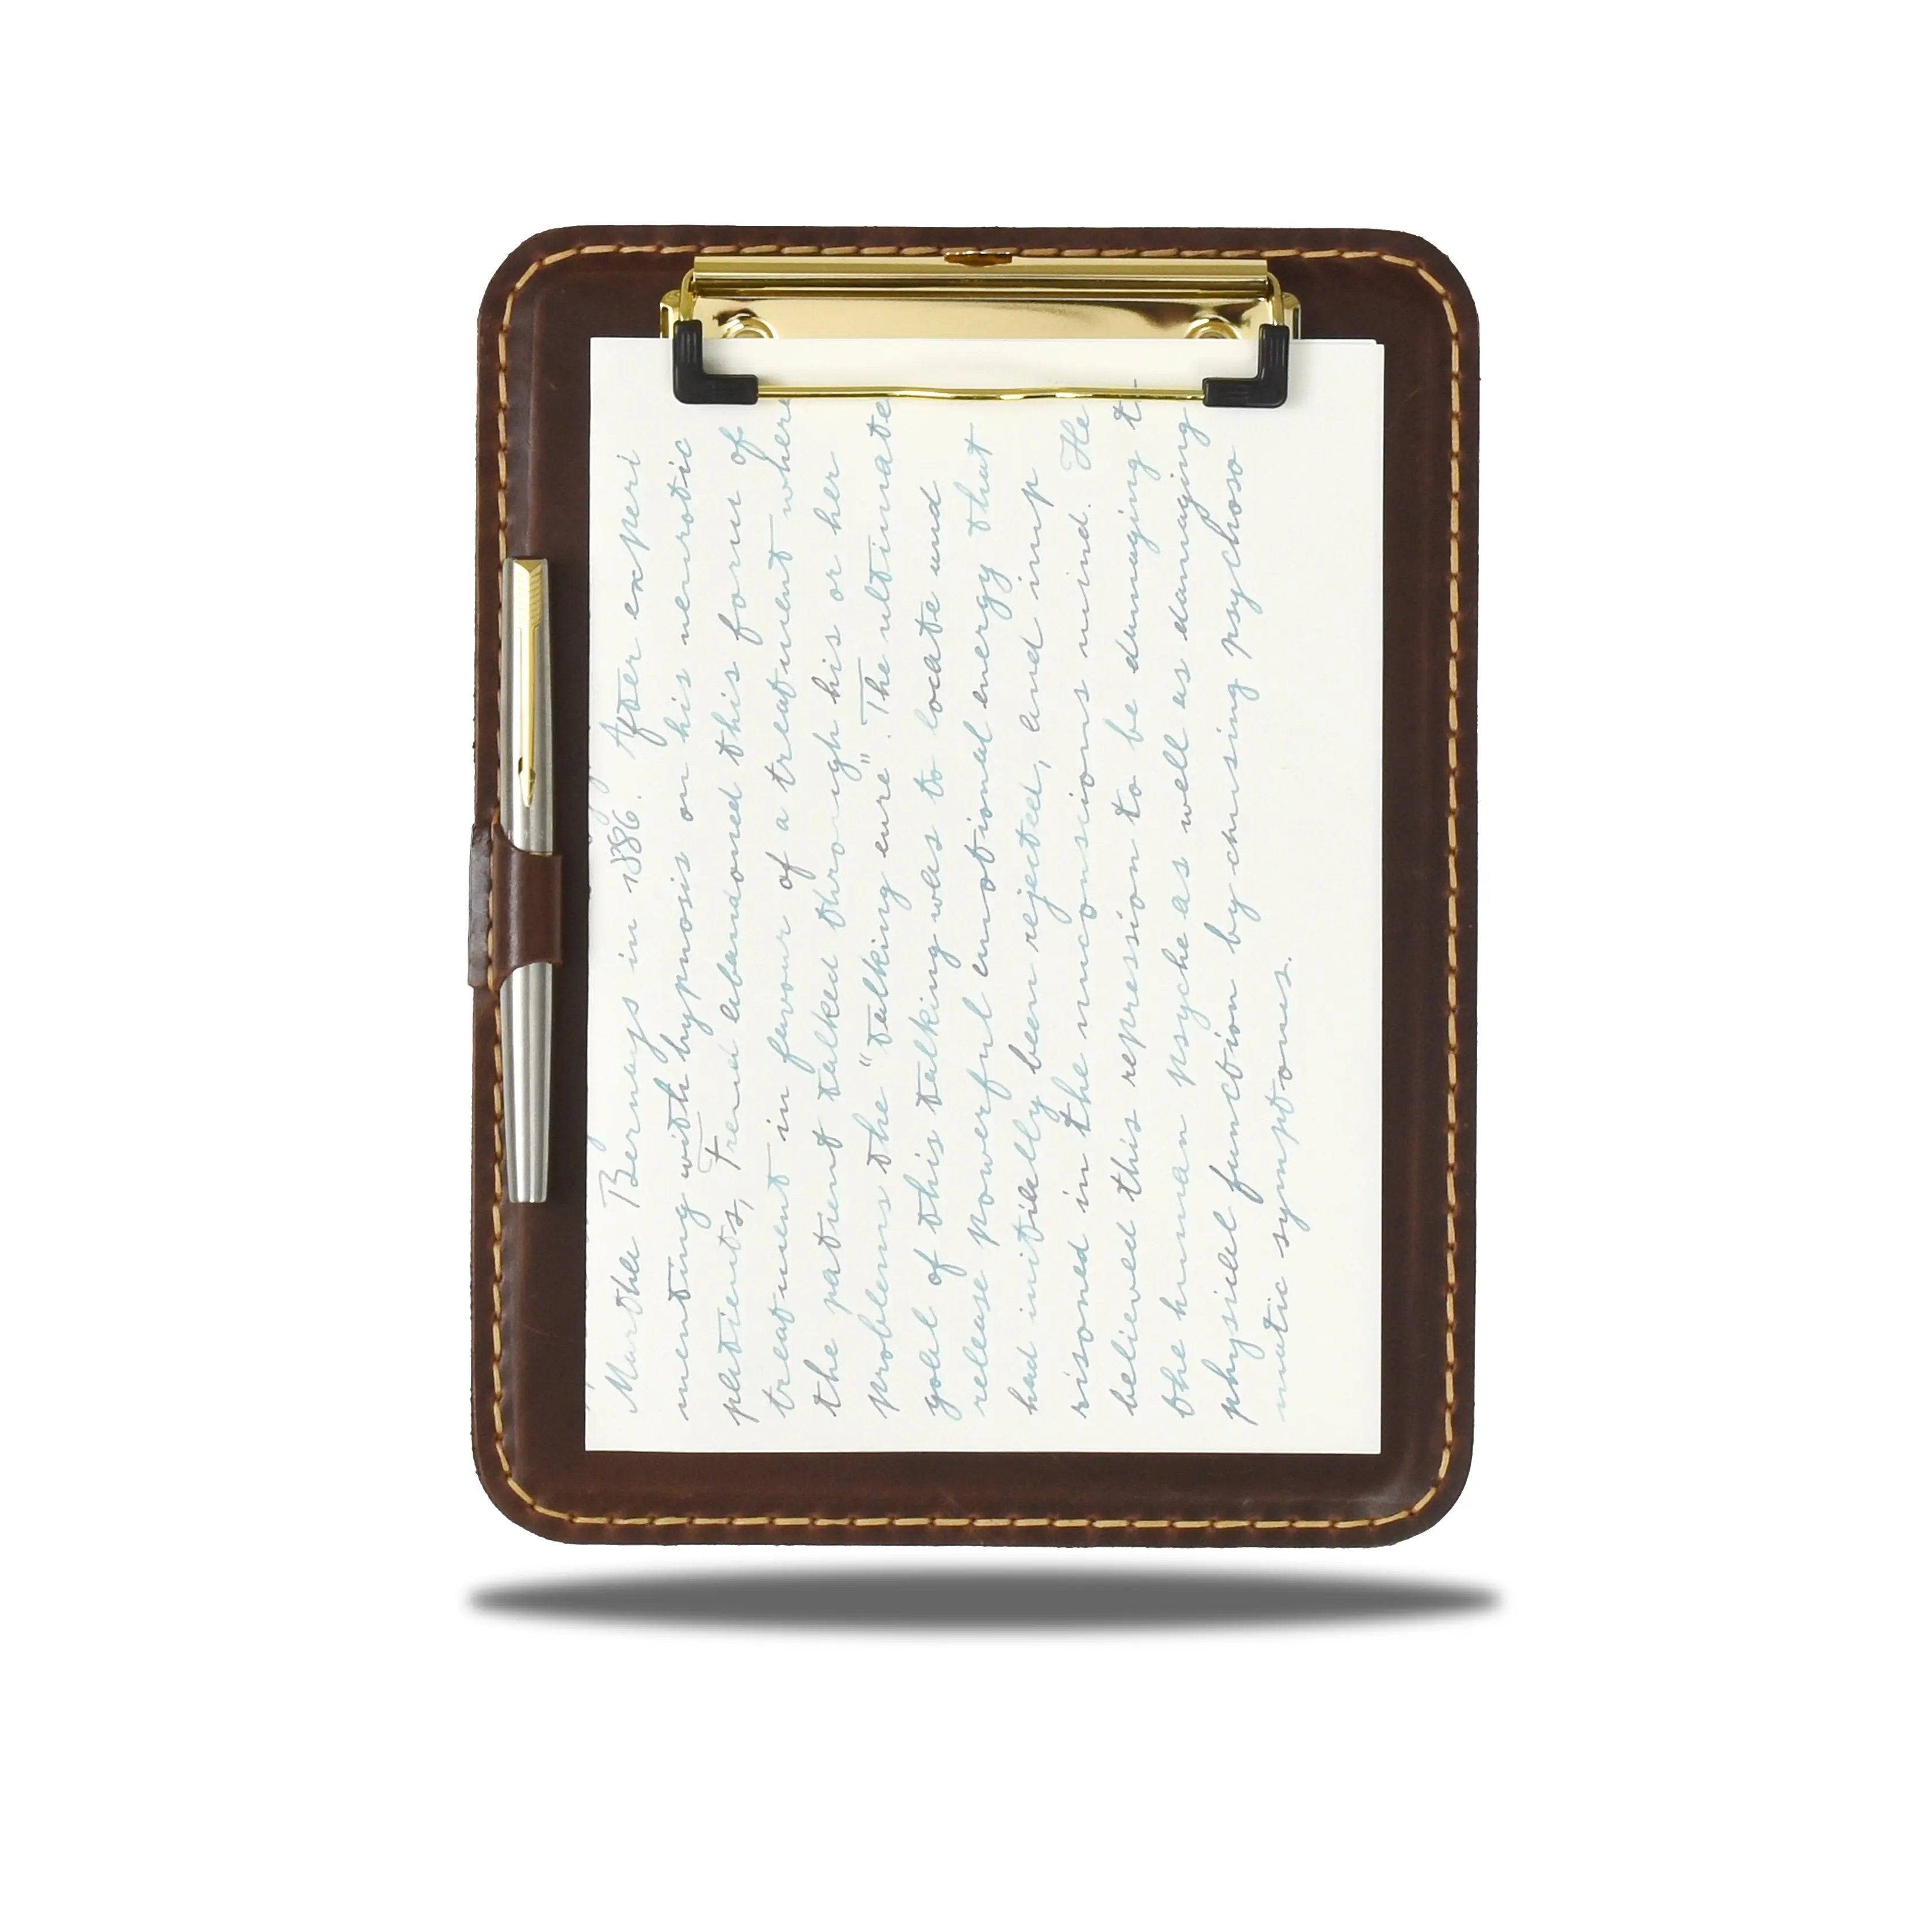 Martha Bernays in 1886. After experi
menting with hypnosis on his neurotic
patients, Freud abandoned this form of
treatment in favour of a treatment where
the patient talked through his or her
problems the "talking cure". The ultimate
goal of this talking was to locate and
release powerful emotional energy that
had initially been rejected, and imp
risoned in the unconscious mind. He
believed this repression to be damaging t
the human psyche as well as damaging
physical function by causing psychoso
matic symptoms.